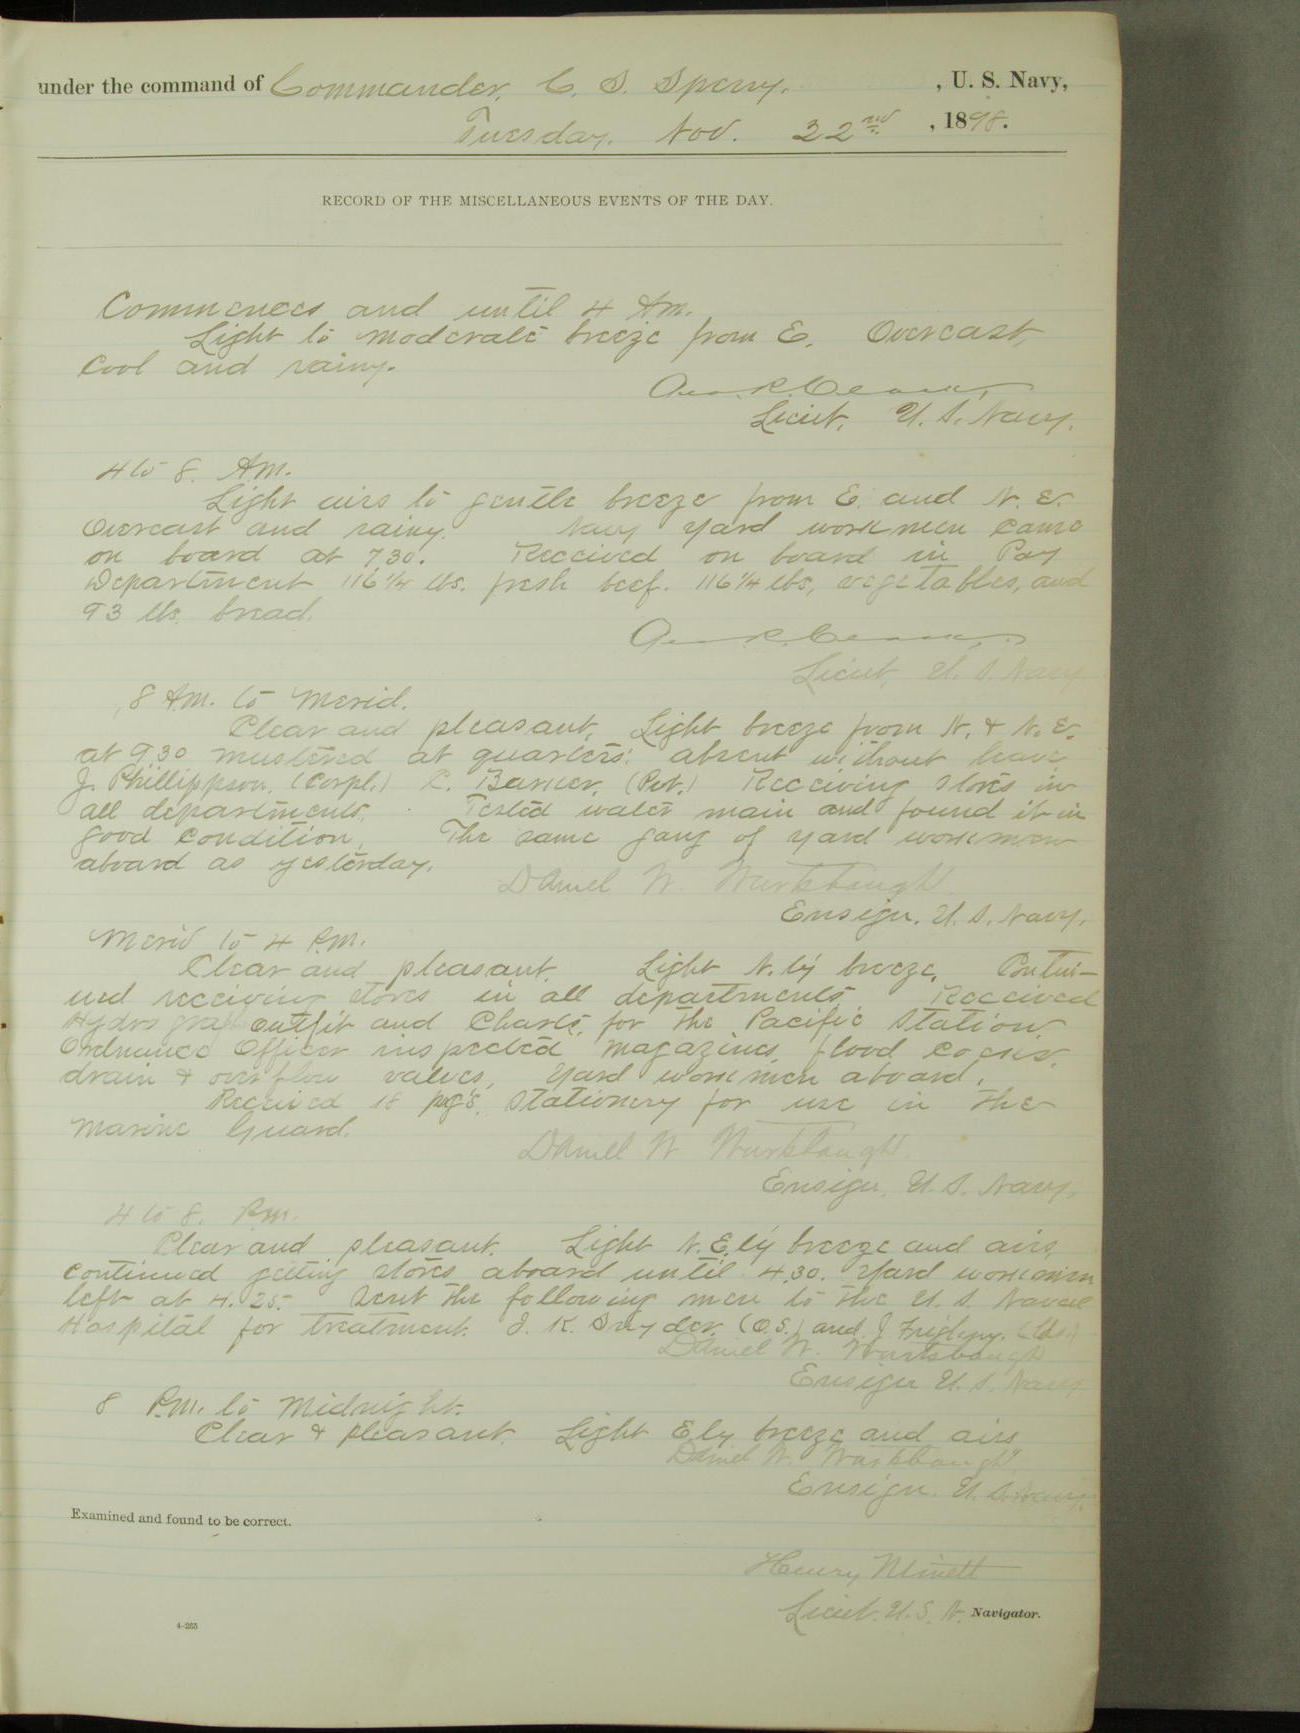 under the command of Commander, C. S. Sperry. , U. S. Navy,
Tuesday. Nov. 22nd. , 1898.
RECORD OF THE MISCELLANEOUS EVENTS OF THE DAY.
Commences and until 4 Am.
Light to moderate breeze from E. Overcast,
Cool and rainy.
Lieut. U. S. Navy.
4 to 8. Am.
Light airs to gentle breeze from E. and N. E.
Overcast and rainy. Navy Yard workmen came
on board at 7.30. Received on board in Pay
Department 116 1/4 lbs. fresh beef. 116 1/4 lbs, vegetables, and
93 lbs. bread.
Lieut. U. S. Navy
8 Am. to Merid.
Clear and pleasant. Light breeze from N. & N. E.
at 9.30 mustered at quarters: absent without leave
J. Phillippson. (Corpl.) (Pvt.) Receiving stores in
all departments. Tested water main and found it in
good condition. The same gang of yard workmen
aboard as yesterday.
Daniel W. Wurtsbaugh
Ensign. U. S. Navy.
Merid to 4 P.m.
Clear and pleasant. Light N.ly breeze. Contin-
ued receiving stores in all departments. Received
outfit and Charts, for the Pacific Station.
Ordnance Officer inspected magazines, flood cocks,
drain & overflow valves, Yard workmen aboard.
Received 18 pkg's. Stationery for use in the
Marine Guard.
Daniel W Wurtsbaugh.
Ensign, U. S. Navy.
4 to 8. P.m.
Clear and pleasant. Light N.E.ly breeze and airs
Continued getting stores aboard until 4.30. Yard workmen
left at 4.25. Sent the following men to the U. S. Naval
Hospital for treatment. J. K. Snyder. (O.S.) and J.
Daniel W. Wurtsbaugh
Ensign U. S. Navy
8 P.m. to Midnight.
Clear & pleasant. Light E.ly breeze and airs
Daniel W. Wurtsbaugh
Ensign. U. S. Navy.
Examined and found to be correct.
Henry Minett
Lieut. U. S. N. Navigator.
4-265